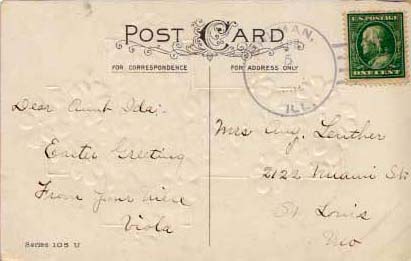 POST CARD
FOR CORRESPONDENCE
FOR ADDRESS ONLY
AN.
5
ILL.
U.S. POSTAGE
ONE CENT
Dear Aunt Ida:-
Easter Greeting
From your niece
Viola
Mrs Aug. Leuther
2122 Miami St.
St Louis
Mo
Series 105 U